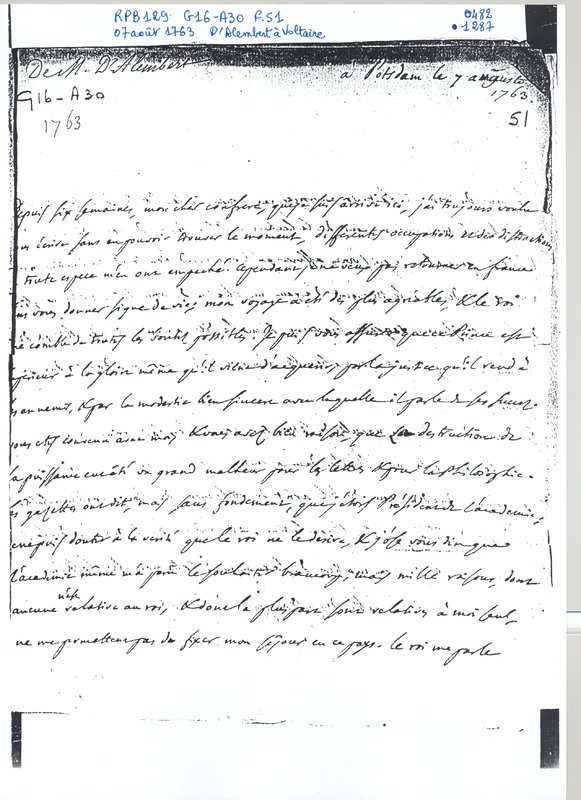 RPB129. G16-A30 F.51
0482
07 août 1763 D'Alembert à Voltaire
• 1287
De M. D'Alembert
a Potsdam le 7 auguste
1763.
G16-A30
1763
51
depuis six semaines, mon cher confrere, que je suis arrivé ici, j'ai toujours voulu
vous écrire sans en pouvoir trouver le moment, differentes occupations et des distractions
de toute espece m'en ont empeché. Cependant je ne veux pas retourner en france
sans vous donner signe de vie; mon voyage a été des plus agréables, & le roi
me comble de toutes les bontés possibles. Je puis vous assurer que ce Prince est
superieur à la gloire même qu'il vient d'acquerir, par la justice qu'il rend à
ses ennemis, & par la modestie bien sincere avec laquelle il parle de ses succez.
vous etes convenu avec moi, & vous avez bien raison, que la destruction de
sa puissance eut été un grand malheur pour les lettres & pour la Philosophie.
les gazettes ont dit, mais sans fondement, que j'étois Président de l'academie;
je ne puis douter à la verité que le roi ne le desire, & j'ose vous dire que
l'academie même m'a paru le souhaiter beaucoup; mais mille raisons, dont
aucune n'est relative au roi, & dont la plupart sont relatives à moi seul,
ne me permettent pas de fixer mon séjour en ce pays. le roi me parle